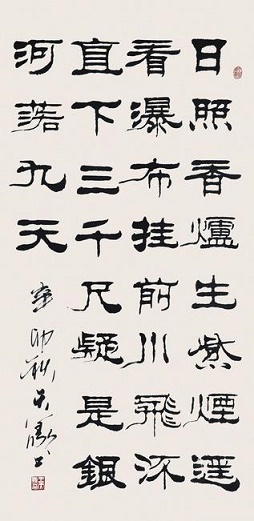 日照香爐生紫煙遥
看瀑布挂前川飛流
直下三千尺疑是銀
河落九天